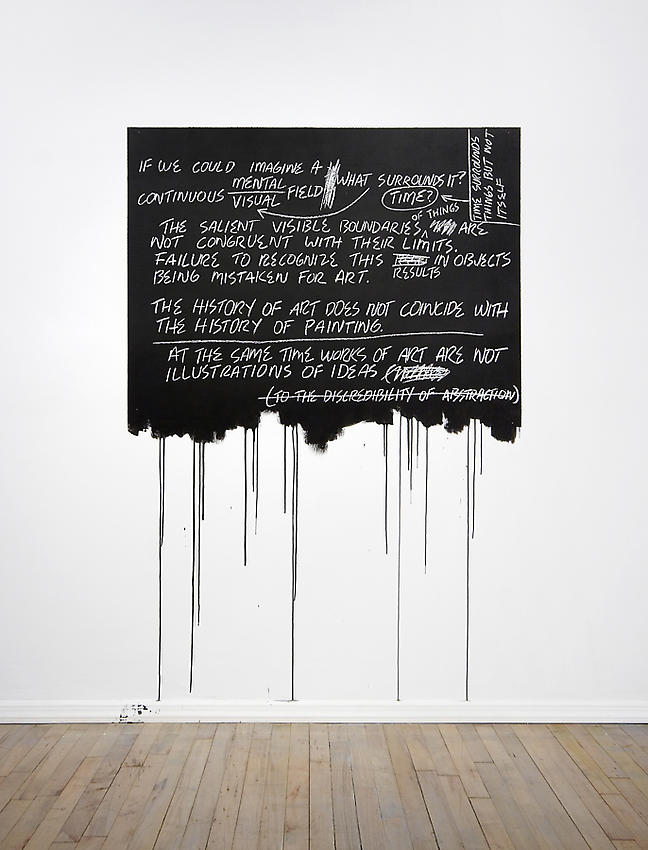 IF WE COULD IMAGINE A WHAT SURROUNDS IT?
CONTINUOUS MENTAL VISUAL FIELD TIME?
TIME SURROUNDS
THINGS BUT NOT
ITSELF
THE SALIENT VISIBLE BOUNDARIES OF THINGS ARE
NOT CONGRUENT WITH THEIR LIMITS.
FAILURE TO RECOGNIZE THIS RESULTS IN OBJECTS
BEING MISTAKEN FOR ART.
THE HISTORY OF ART DOES NOT COINCIDE WITH
THE HISTORY OF PAINTING.
AT THE SAME TIME WORKS OF ART ARE NOT
ILLUSTRATIONS OF IDEAS
(TO THE DISCREDIBILITY OF ABSTRACTION)